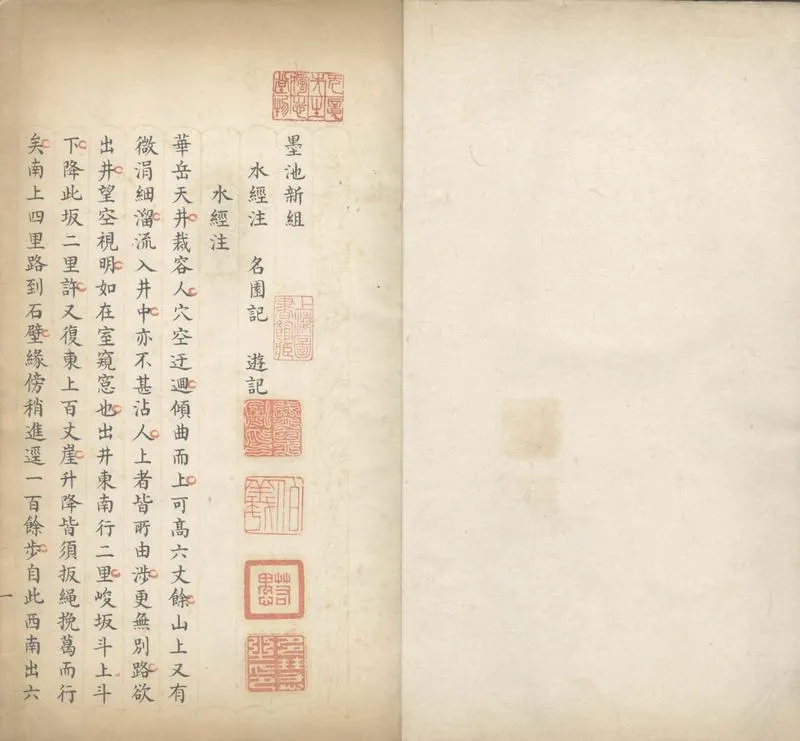 墨池新組
水經注 名園記 遊記
水經注
華岳天井裁容人穴空迂迴傾曲而上可高六丈餘山上又有
微涓細溜流入井中亦不甚沾人上者皆所由涉更無別路欲
出井望空視明如在室窺窓也出井東南行二里峻坂斗上斗
下降此坂二里許又復東上百丈崖升降皆須扳繩挽葛而行
矣南上四里路到石壁緣傍稍進逕一百餘步自此西南出六
一
上海圖書館藏